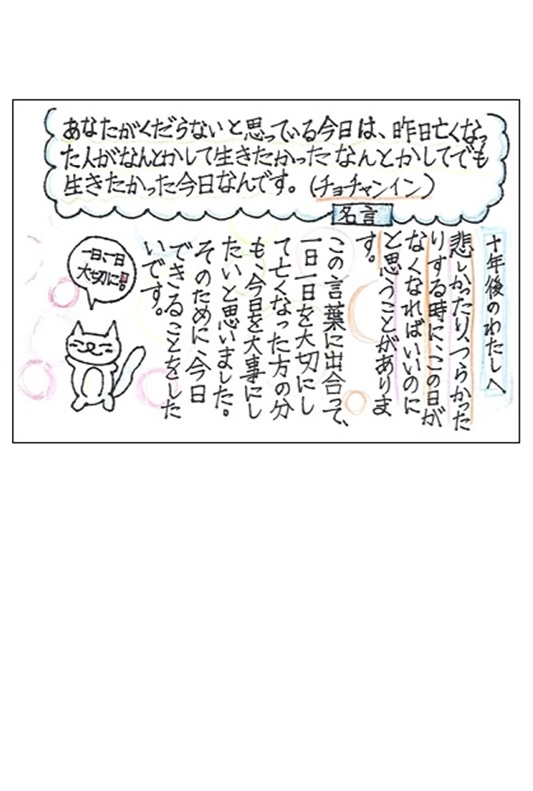 あなたがくだらないと思っている今日は、昨日亡くなっ
た人がなんとかして生きたかったなんとかしてでも
生きたかった今日なんです。(チョチャンイン)
名言
十年後のわたしへ
悲しかたり、つらかった
りする時に、この日が
なくなればいいのに
と思うことがありま
す。
この言葉に出合って、
一日一日を大切にし
て亡くなった方の分
も、今日を大事にし
たいと思いました。
そのために、今日
できることをした
いです。
一日、一日
大切に!